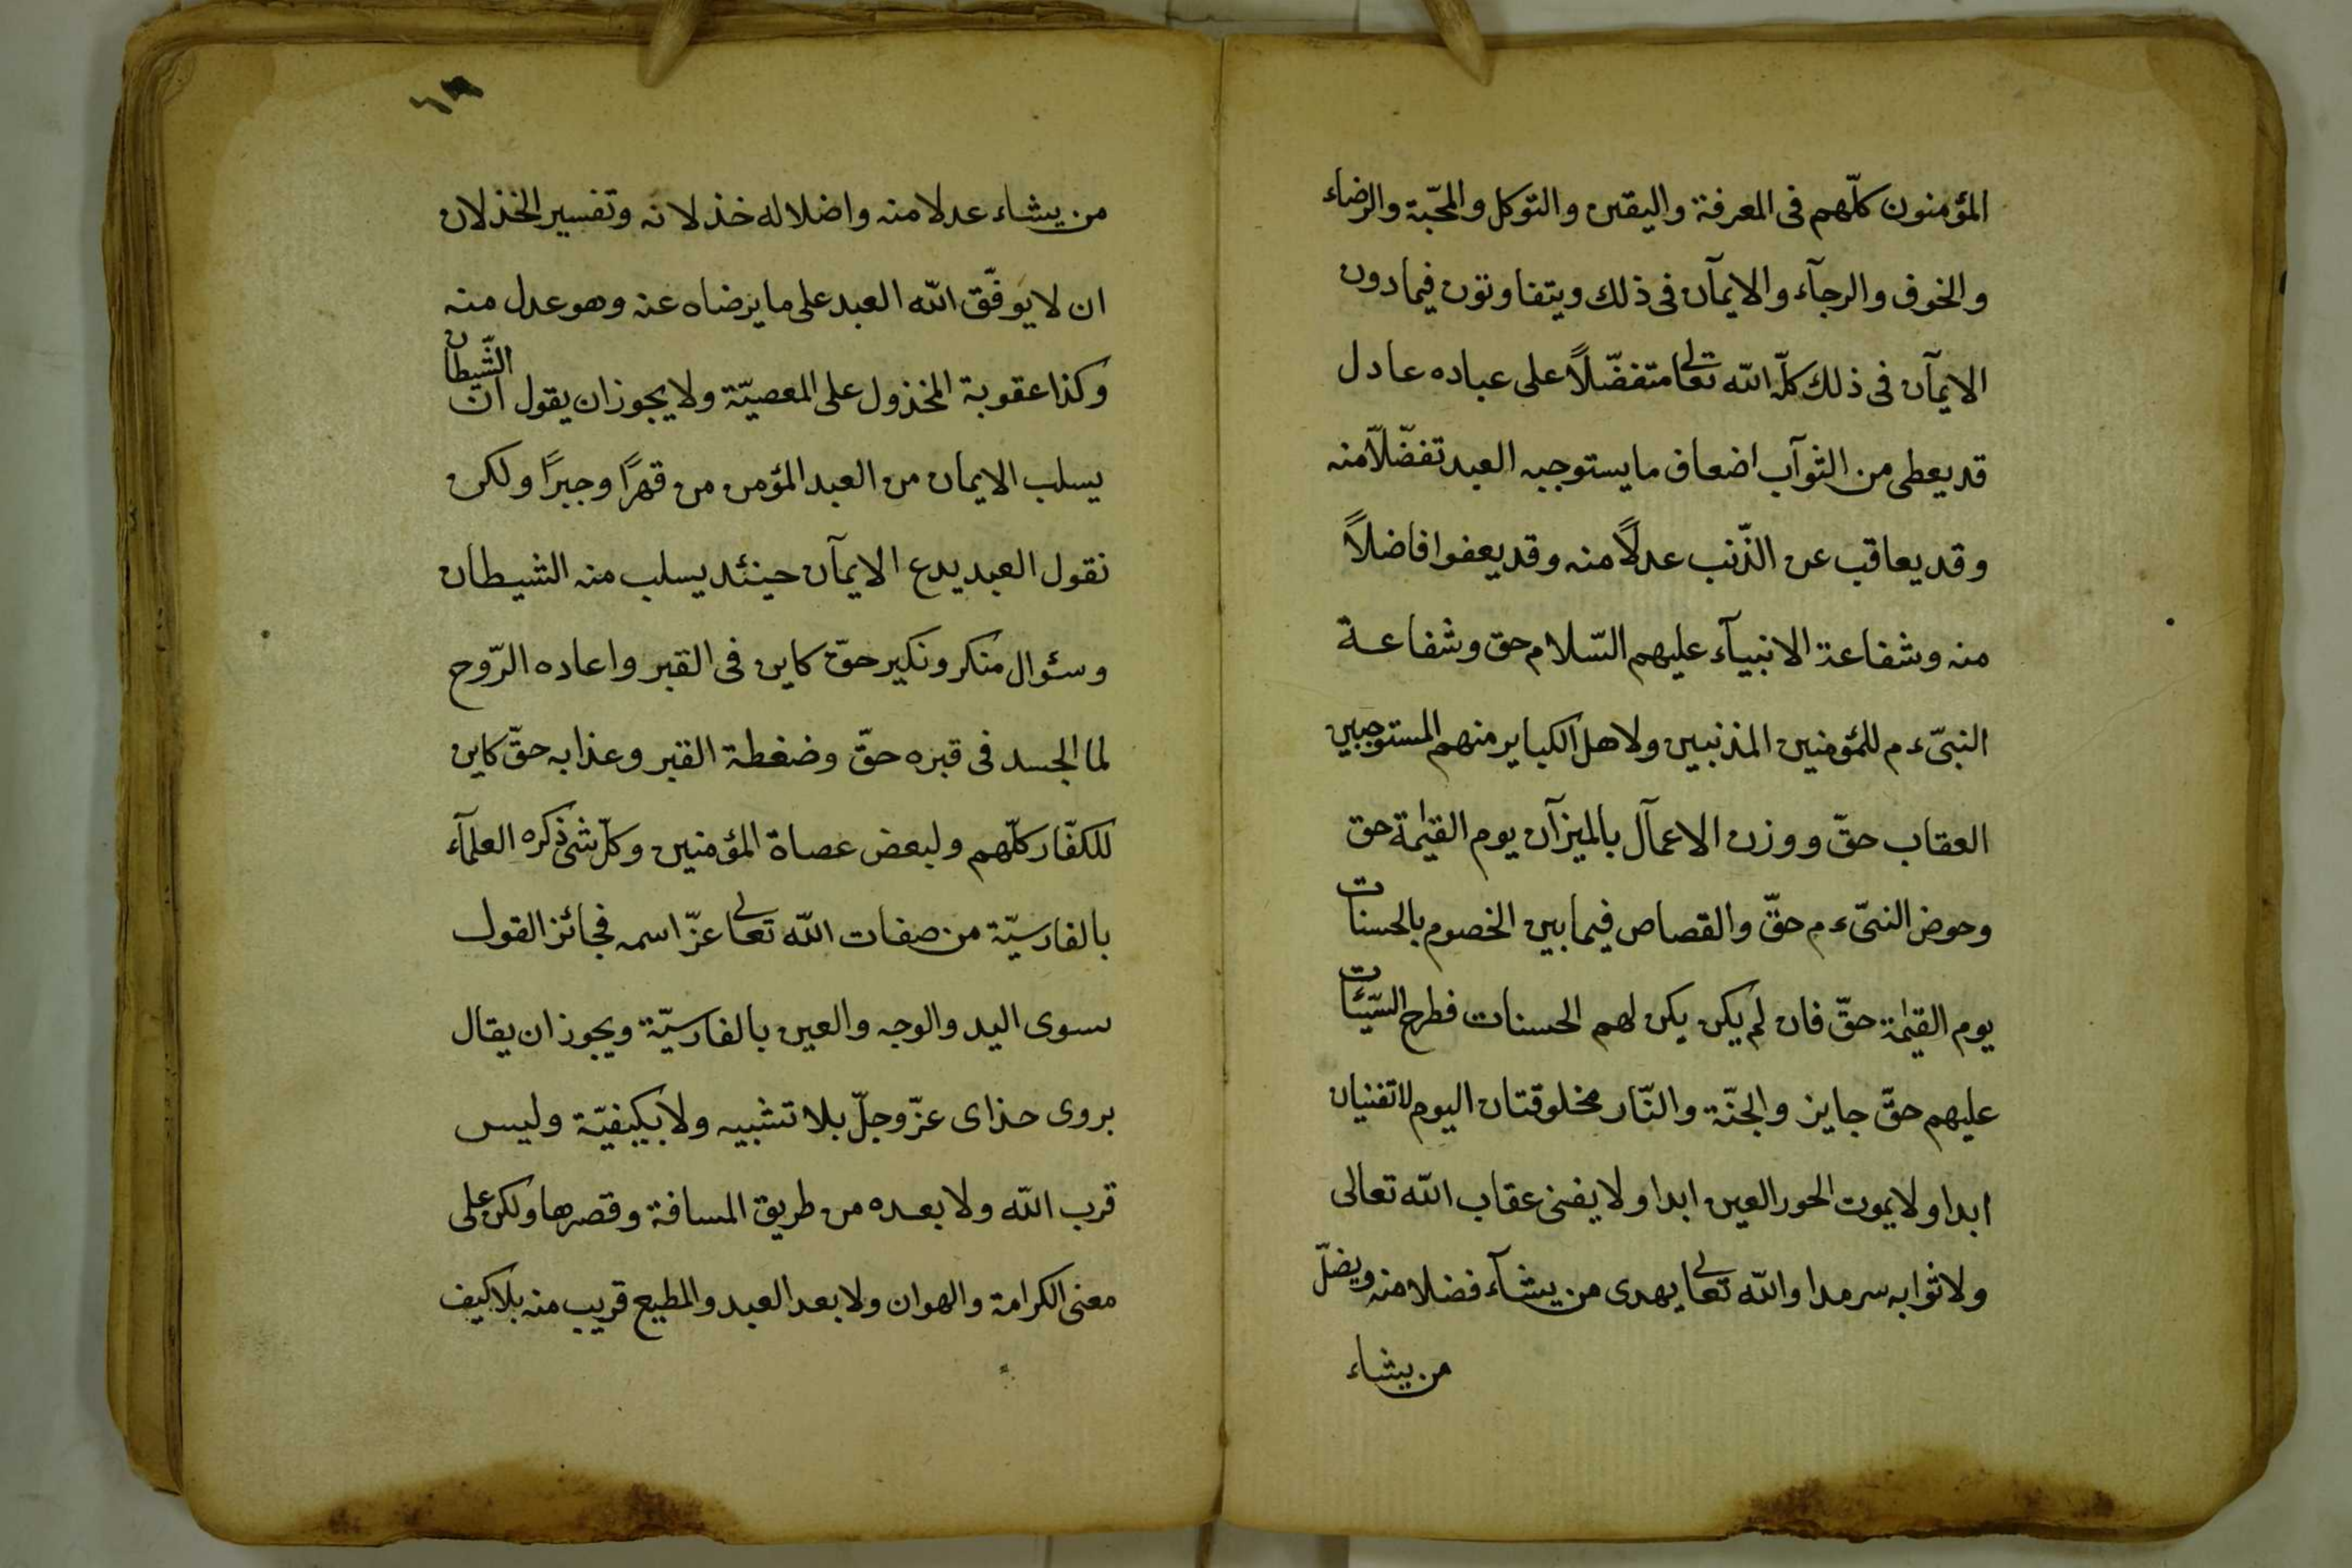 المؤمنون كلّهم فى المعرفة واليقين والتوكل والمحبّة والرضاء
والخوف والرجآء والايمآن فى ذلك ويتفاوتون فيمادون
الايمآن فى ذلك كلّه الله تعالى متفضّلاً على عباده عادل
قد يعطى من الثوآب اضعاف ما يستوجبه العبد تفضّلاً منه
وقد يعاقب عن الذّنب عدلاً منه وقد يعفوا فاضلاً
منه وشفاعة الانبيآء عليهم السّلام حق وشفاعة
النبىّ ءم للمؤمنين المذنبين ولاهل الكباير منهم المستوجبين
العقاب حقّ ووزن الاعمآل بالميزآن يوم القيٰمة حق
وحوض النبىّ ءم حقّ والقصاص فيما بين الخصوم بالحسنات
يوم القيٰمة حقّ فان لم يكن يكن لهم الحسنات فطرح السّيّئات
عليهم حقّ جايز والجنّة والنّار مخلوقتان اليوم لا تفنيان
ابدا ولا يموت الحور العين ابدا ولا يفنى عقاب الله تعالى
ولا ثوابه سرمدا والله تعالى يهدى من يشآء فضلا منه ويضلّ
من يشاء
١٩
من يشاء عدلا منه واضلاله خذلانه وتفسير الخذلان
ان لا يوفّق الله العبد على ما يرضاه عنه وهو عدل منه
وكذا عقوبة المخذول على المعصيّة ولا يجوز ان يقول انّ الشّيطان
يسلب الايمان من العبد المؤمن من قهرًا وجبرًا ولكن
نقول العبد يدع الايمآن حينئد يسلب منه الشيطان
وسئوال منكر ونكير حقّ كاين فى القبر واعاده الرّوح
لما الجسد فى قبره حقّ وضغطة القبر وعذابه حقّ كاين
للكفّار كلّهم ولبعض عصاة المؤمنين وكلّ شئ ذكره العلمآء
بالفارسيّة من صفات الله تعالى عزّ اسمه فجائز القول
سوى اليد والوجه والعين بالفارسيّة ويجوز ان يقال
بروى حذاى عزّ وجلّ بلا تشبيه ولا بكيفيّة وليس
قرب الله ولا بعده من طريق المسافة وقصرها ولكن على
معنى الكرامة والهوان ولا بعد العبد والمطيع قريب منه بلا كيف